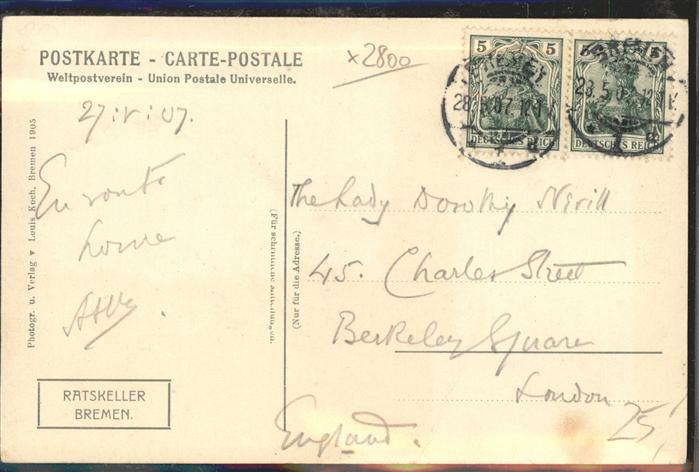 POSTKARTE - CARTE-POSTALE
Weltpostverein - Union Postale Universelle.
×2800
5 5
5
BREMEN
28.5.07. 12-1 V
DEUTSCHES REICH
BREMEN
28.5.0
DEUTSCHES REICH
27.V.07.
En route
home
Photogr. u. Verlag v Louis Koch, Bremen 1905
(Für schriftliche Mitteilungen.
(Nur für die Adresse.)
The Lady Dorothy Nevill
45. Charles Street
Berkeley Square
London
England.
25
RATSKELLER
BREMEN.